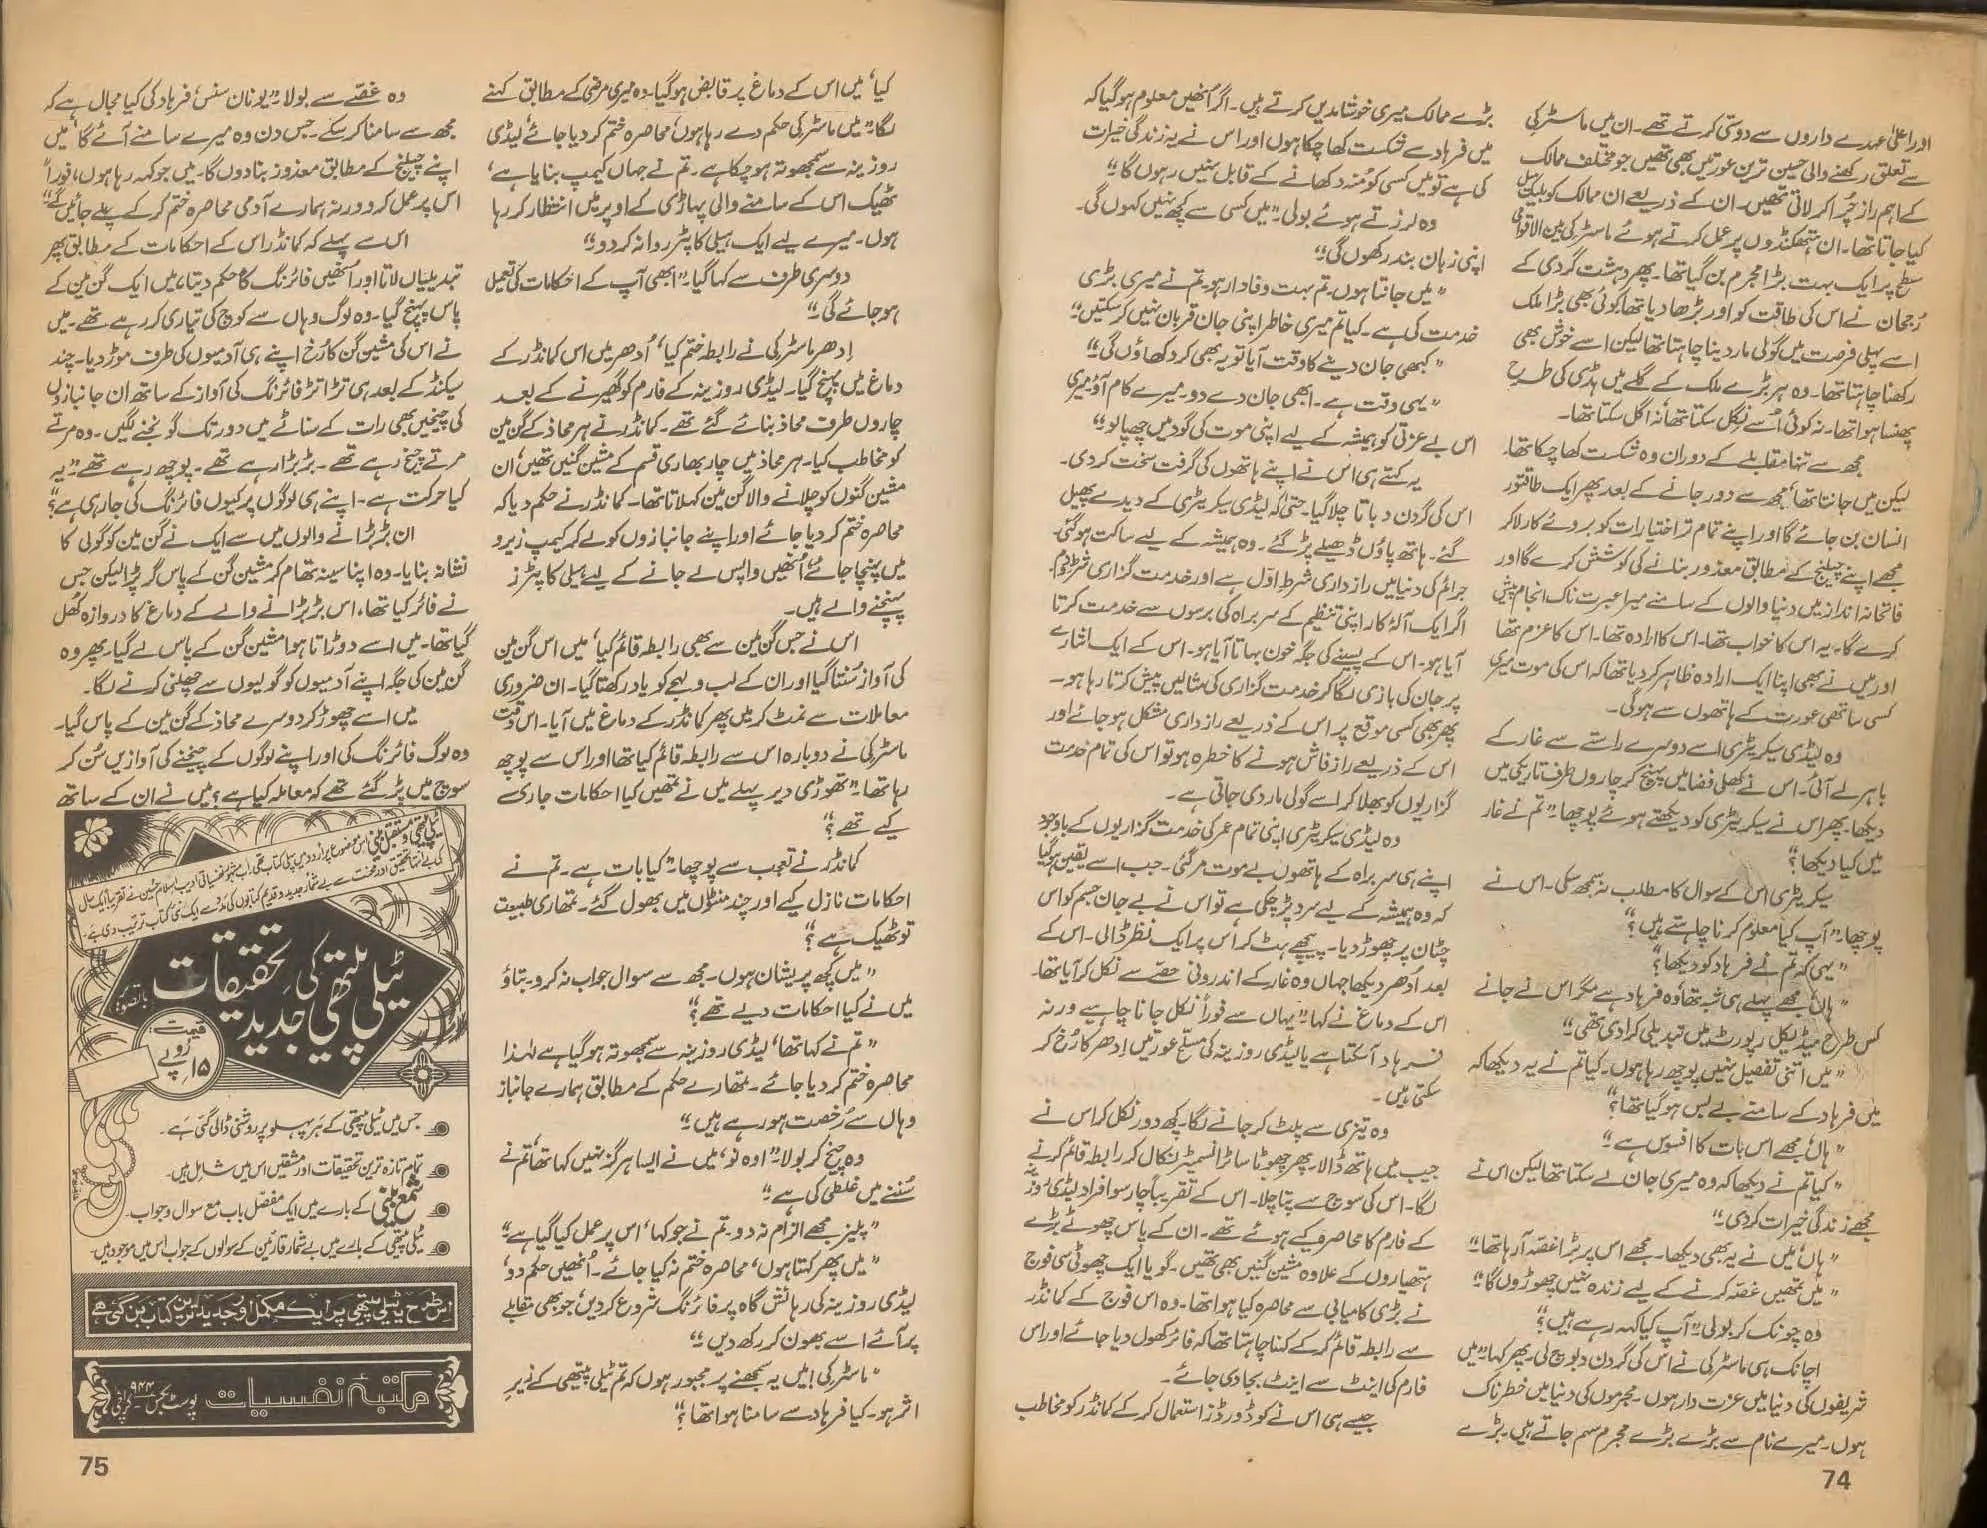 اور اعلیٰ عہدے داروں سے دوستی کرتے تھے۔ ان میں ماسٹر کی
سے تعلق رکھنے والی حسین ترین عورتیں بھی تھیں جو مختلف ممالک
کے اہم راز چُرا کر لاتی تھیں۔ ان کے ذریعے ان ممالک کو بلیک میل
کیا جاتا تھا۔ ان ہتھکنڈوں پر عمل کرتے ہوئے ماسٹر کی بین الاقوامی
سطح پر ایک بہت بڑا مجرم بن گیا تھا۔ پھر دہشت گردی کے
رُجحان نے اس کی طاقت کو اور بڑھا دیا تھا۔ کوئی بھی بڑا ملک
اسے پہلی فرصت میں گولی مار دینا چاہتا تھا لیکن اسے خوش بھی
رکھنا چاہتا تھا۔ وہ ہر بڑے ملک کے گلے میں ہڈی کی طرح
پھنسا ہوا تھا۔ نہ کوئی اُسے نگل سکتا تھا نہ اگل سکتا تھا۔
مجھ سے تنہا مقابلے کے دوران وہ شکست کھا چکا تھا۔
لیکن میں جانتا تھا، مجھ سے دور جانے کے بعد پھر ایک طاقتور
انسان بن جائے گا اور اپنے تمام تر اختیارات کو بروئے کار لا کر
مجھے اپنے چیلنج کے مطابق معذور بنانے کی کوشش کرے گا اور
فاتحانہ انداز میں دنیا والوں کے سامنے میرا عبرت ناک انجام پیش
کرے گا۔ یہ اس کا خواب تھا۔ اس کا ارادہ تھا۔ اس کا عزم تھا
اور میں نے بھی اپنا ایک ارادہ ظاہر کر دیا تھا کہ اس کی موت میری
کسی ساتھی عورت کے ہاتھوں سے ہوگی۔
وہ لیڈی سیکریٹری اسے دوسرے راستے سے غار کے
باہر لے آئی۔ اس نے کھلی فضا میں پہنچ کر چاروں طرف تاریکی میں
دیکھا۔ پھر اس نے سیکریٹری کو دیکھتے ہوئے پوچھا۔ "تم نے غار
میں کیا دیکھا؟"
سیکریٹری اس کے سوال کا مطلب نہ سمجھ سکی۔ اس نے
پوچھا۔ "آپ کیا معلوم کرنا چاہتے ہیں؟"
"یہی کہ تم نے فرہاد کو دیکھا؟"
"ہاں، مجھے پہلے ہی شبہ تھا، وہ فرہاد ہے مگر اس نے جانے
کس طرح میڈیکل رپورٹ میں تبدیلی کرا دی تھی۔"
"میں اتنی تفصیل نہیں پوچھ رہا ہوں۔ کیا تم نے یہ دیکھا کہ
میں فرہاد کے سامنے بے بس ہو گیا تھا؟"
"ہاں، مجھے اس بات کا افسوس ہے۔"
"کیا تم نے دیکھا کہ وہ میری جان لے سکتا تھا لیکن اس نے
مجھے زندگی خیرات کر دی۔"
"ہاں، میں نے یہ بھی دیکھا۔ مجھے اس پر بڑا غصہ آ رہا تھا۔"
"میں تمھیں غصّہ کرنے کے لیے زندہ نہیں چھوڑوں گا۔"
وہ چونک کر بولی۔ "آپ کیا کہہ رہے ہیں؟"
اچانک ہی ماسٹر کی نے اس کی گردن دبوچ لی۔ پھر کہا۔ "میں
شریفوں کی دنیا میں عزت دار ہوں۔ مجرموں کی دنیا میں خطرناک
ہوں۔ میرے نام سے بڑے بڑے مجرم سہم جاتے ہیں۔ بڑے
بڑے ممالک میری خوشامدیں کرتے ہیں۔ اگر اُنھیں معلوم ہو گیا کہ
میں فرہاد سے شکست کھا چکا ہوں اور اس نے یہ زندگی خیرات
کی ہے تو میں کسی کو مُنہ دکھانے کے قابل نہیں رہوں گا۔"
وہ لرزتے ہوئے بولی۔ "میں کسی سے کچھ نہیں کہوں گی۔
اپنی زبان بند رکھوں گی۔"
"میں جانتا ہوں۔ تم بہت وفادار ہو۔ تم نے میری بڑی
خدمت کی ہے۔ کیا تم میری خاطر اپنی جان قربان نہیں کر سکتیں؟"
"کبھی جان دینے کا وقت آیا تو یہ بھی کر دکھاؤں گی۔"
"یہی وقت ہے۔ ابھی جان دے دو۔ میرے کام آؤ۔ میری
اس بے عزتی کو ہمیشہ کے لیے اپنی موت کی گود میں چھپا لو۔"
یہ کہتے ہی اس نے اپنے ہاتھوں کی گرفت سخت کر دی۔
اس کی گردن دباتا چلا گیا۔ حتیٰ کہ لیڈی سیکریٹری کے دیدے پھیل
گئے۔ ہاتھ پاؤں ڈھیلے پڑ گئے۔ وہ ہمیشہ کے لیے ساکت ہو گئی۔
جرائم کی دنیا میں رازداری شرطِ اوّل ہے اور خدمت گزاری شرطِ دوم۔
اگر ایک آلۂ کار اپنی تنظیم کے سربراہ کی برسوں سے خدمت کرتا
آیا ہو۔ اس کے پسینے کی جگہ خون بہاتا آیا ہو۔ اس کے ایک اشارے
پر جان کی بازی لگا کر خدمت گزاری کی مثالیں پیش کرتا رہا ہو۔
پھر بھی کسی موقع پر اس کے ذریعے رازداری مشکل ہو جائے اور
اس کے ذریعے راز فاش ہونے کا خطرہ ہو تو اس کی تمام خدمت
گزاریوں کو بھلا کر اسے گولی مار دی جاتی ہے۔
وہ لیڈی سیکریٹری اپنی تمام عمر کی خدمت گزاریوں کے باوجود
اپنے ہی سربراہ کے ہاتھوں بے موت مر گئی۔ جب اسے یقین ہو گیا
کہ وہ ہمیشہ کے لیے سرد پڑ چکی ہے تو اس نے بے جان جسم کو اس
چٹان پر چھوڑ دیا۔ پیچھے ہٹ کر اس پر ایک نظر ڈالی۔ اس کے
بعد اُدھر دیکھا جہاں وہ غار کے اندرونی حصّے سے نکل کر آیا تھا۔
اس کے دماغ نے کہا۔ "یہاں سے فوراً نکل جانا چاہیے ورنہ
فرہاد آ سکتا ہے یا لیڈی روزینہ کی مسلح عورتیں اِدھر کا رُخ کر
سکتی ہیں۔
وہ تیزی سے پلٹ کر جانے لگا۔ کچھ دور نکل کر اس نے
جیب میں ہاتھ ڈالا۔ پھر چھوٹا سا ٹرانسمیٹر نکال کر رابطہ قائم کرنے
لگا۔ اس کی سوچ سے پتا چلا۔ اس کے تقریباً چار سو افراد لیڈی روزینہ
کے فارم کا محاصرہ کیے ہوئے تھے۔ ان کے پاس چھوٹے بڑے
ہتھیاروں کے علاوہ مشین گنیں بھی تھیں۔ گویا ایک چھوٹی سی فوج
نے بڑی کامیابی سے محاصرہ کیا ہوا تھا۔ وہ اس فوج کے کمانڈر
سے رابطہ قائم کر کے کہنا چاہتا تھا کہ فائر کھول دیا جائے اور اس
فارم کی اینٹ سے اینٹ بجا دی جائے۔
جیسے ہی اس نے کوڈ ورڈز استعمال کر کے کمانڈر کو مخاطب
74
کیا، میں اس کے دماغ پر قابض ہو گیا۔ وہ میری مرضی کے مطابق کہنے
لگا۔ "میں ماسٹر کی حکم دے رہا ہوں، محاصرہ ختم کر دیا جائے، لیڈی
روزینہ سے سمجھوتہ ہو چکا ہے۔ تم نے جہاں کیمپ بنایا ہے،
ٹھیک اس کے سامنے والی پہاڑی کے اوپر میں انتظار کر رہا
ہوں۔ میرے لیے ایک ہیلی کاپٹر روانہ کر دو۔"
دوسری طرف سے کہا گیا۔ "ابھی آپ کے احکامات کی تعمیل
ہو جائے گی۔"
اِدھر ماسٹر کی نے رابطہ ختم کیا، اُدھر میں اس کمانڈر کے
دماغ میں پہنچ گیا۔ لیڈی روزینہ کے فارم کو گھیرنے کے بعد
چاروں طرف محاذ بنائے گئے تھے۔ کمانڈر نے ہر محاذ کے گن مین
کو مخاطب کیا۔ ہر محاذ میں چار بھاری قسم کے مشین گنیں تھیں، ان
مشین گنوں کو چلانے والا گن مین کہلاتا تھا۔ کمانڈر نے حکم دیا کہ
محاصرہ ختم کر دیا جائے اور اپنے جانبازوں کو لے کر کیمپ زیرو
میں پہنچا جائے، اُنھیں واپس لے جانے کے لیے ہیلی کاپٹرز
پہنچنے والے ہیں۔
اس نے جس گن مین سے بھی رابطہ قائم کیا، میں اس گن مین
کی آواز سُنتا گیا اور ان کے لب و لہجے کو یاد رکھتا گیا۔ ان ضروری
معاملات سے نمٹ کر میں پھر کمانڈر کے دماغ میں آیا۔ اس وقت
ماسٹر کی نے دوبارہ اس سے رابطہ قائم کیا تھا اور اس سے پوچھ
رہا تھا۔ "تھوڑی دیر پہلے میں نے تمھیں کیا احکامات جاری
کیے تھے؟"
کمانڈر نے تعجب سے پوچھا۔ "کیا بات ہے۔ تم نے
احکامات نازل کیے اور چند منٹوں میں بھول گئے۔ تمھاری طبیعت
تو ٹھیک ہے؟"
"میں کچھ پریشان ہوں۔ مجھ سے سوال جواب نہ کرو۔ بتاؤ
میں نے کیا احکامات دیے تھے؟"
"تم نے کہا تھا، لیڈی روزینہ سے سمجھوتہ ہو گیا ہے لہٰذا
محاصرہ ختم کر دیا جائے۔ تمھارے حکم کے مطابق ہمارے جانباز
وہاں سے رُخصت ہو رہے ہیں۔"
وہ چیخ کر بولا۔ "اوہ نو، میں نے ایسا ہرگز نہیں کہا تھا، تم نے
سُننے میں غلطی کی ہے۔"
"پلیز مجھے الزام نہ دو۔ تم نے جو کہا، اس پر عمل کیا گیا ہے۔"
"میں پھر کہتا ہوں، محاصرہ ختم نہ کیا جائے۔ اُنھیں حکم دو،
لیڈی روزینہ کی رہائش گاہ پر فائرنگ شروع کر دیں، جو بھی مقابلے
پر آئے اسے بھون کر رکھ دیں۔"
"ماسٹر کی! میں یہ سمجھنے پر مجبور ہوں کہ تم ٹیلی پیتھی کے زیرِ
اثر ہو۔ کیا فرہاد سے سامنا ہوا تھا؟"
وہ غصّے سے بولا۔ "یونان سنس، فرہاد کی کیا مجال ہے کہ
مجھ سے سامنا کر سکے۔ جس دن وہ میرے سامنے آئے گا، میں
اپنے چیلنج کے مطابق معذور بنا دوں گا۔ میں جو کہہ رہا ہوں، فوراً
اس پر عمل کرو ورنہ ہمارے آدمی محاصرہ ختم کر کے چلے جائیں گے۔"
اس سے پہلے کہ کمانڈر اس کے احکامات کے مطابق پھر
تبدیلیاں لاتا اور اُنھیں فائرنگ کا حکم دیتا، میں ایک گن مین کے
پاس پہنچ گیا۔ وہ لوگ وہاں سے کوچ کی تیاری کر رہے تھے۔ میں
نے اس کی مشین گن کا رُخ اپنے ہی آدمیوں کی طرف موڑ دیا۔ چند
سیکنڈ کے بعد ہی تڑاتڑ فائرنگ کی آواز کے ساتھ ان جانبازوں
کی چیخیں بھی رات کے سناٹے میں دور تک گونجنے لگیں۔ وہ مرتے
مرتے چیخ رہے تھے۔ بڑبڑا رہے تھے۔ پوچھ رہے تھے۔ "یہ
کیا حرکت ہے۔ اپنے ہی لوگوں پر کیوں فائرنگ کی جا رہی ہے؟"
ان بڑبڑانے والوں میں سے ایک نے گن مین کو گولی کا
نشانہ بنایا۔ وہ اپنا سینہ تھام کر مشین گن کے پاس گر پڑا لیکن جس
نے فائر کیا تھا، اس بڑبڑانے والے کے دماغ کا دروازہ کھُل
گیا تھا۔ میں اسے دوڑاتا ہوا مشین گن کے پاس لے گیا۔ پھر وہ
گن مین کی جگہ اپنے آدمیوں کو گولیوں سے چھلنی کرنے لگا۔
میں اسے چھوڑ کر دوسرے محاذ کے گن مین کے پاس گیا۔
وہ لوگ فائرنگ کی اور اپنے لوگوں کے چیخنے کی آوازیں سُن کر
سوچ میں پڑ گئے تھے کہ معاملہ کیا ہے؟ میں نے ان کے ساتھ
ٹیلی پیتھی و مستقبل بینی اس موضوع پر اُردو میں پہلی کتاب تھی۔ اب مشہور نفسیاتی ادیب اسلام حسین نے تقریباً ایک سال
کی بے انتہا تحقیق اور محنت سے بے شمار جدید و قدیم کتابوں کی مدد سے ایک نئی کتاب ترتیب دی ہے۔
ٹیلی پیتھی کی
جدید تحقیقات
با تصویر
قیمت:
۱۵ روپے
جس میں ٹیلی پیتھی کے ہر پہلو پر روشنی ڈالی گئی ہے۔
تمام تازہ ترین تحقیقات اور مشقیں اس میں شامل ہیں۔
شمع بینی کے بارے میں ایک مفصّل باب مع سوال و جواب۔
ٹیلی پیتھی کے بارے میں بے شمار قارئین کے سوالوں کے جواب اس میں موجود ہیں۔
اس طرح یہ ٹیلی پیتھی پر ایک مکمل اور جدید ترین کتاب بن گئی ہے
مکتبۂ نفسیات پوسٹ بکس ۹۴۴ کراچی
75